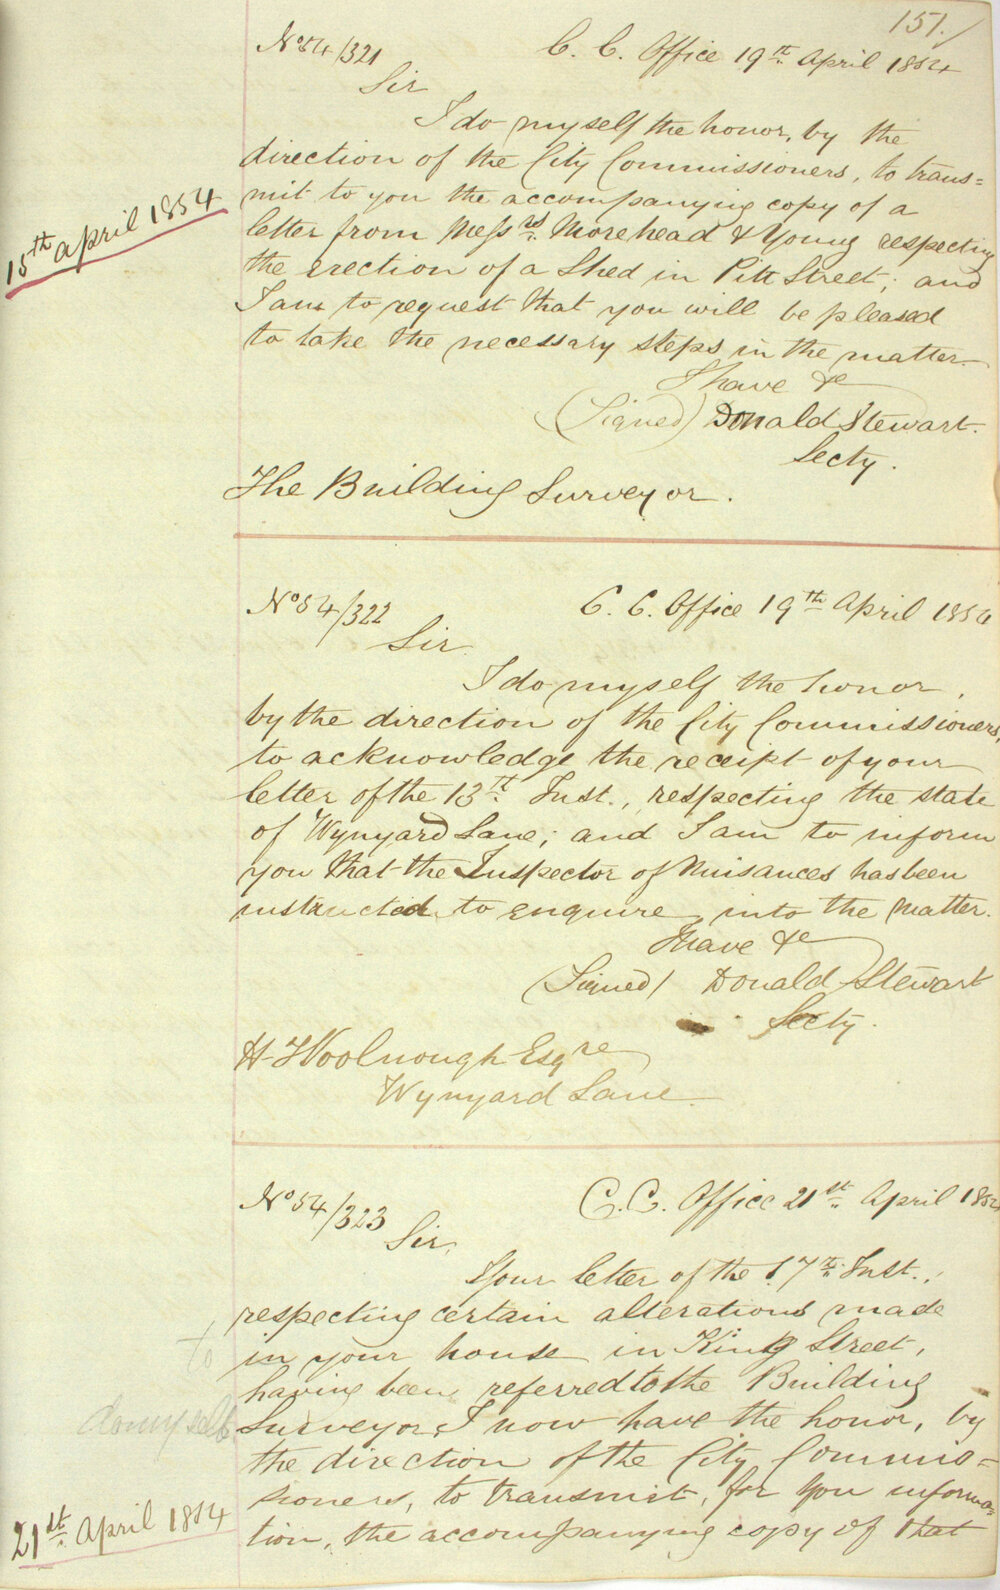 151.
No 54/321
C. C. Office 19th April 1854
Sir
I do myself the honor, by the
direction of the City Commissioners, to trans=
mit to you the accompanying copy of a
15th April 1854
letter from Messrs. Morehead & Young respecting
the erection of a Shed in Pitt Street; and
I am to request that you will be pleased
to take the necessary steps in the matter.
I have &c
(Signed) Donald Stewart.
Secty.
The Building Surveyor.
No 54/322
C. C. Office 19th April 1854
Sir
I do myself the honor,
by the direction of the City Commissioners,
to acknowledge the receipt of your
letter of the 13th Inst., respecting the state
of Wynyard Lane; and I am to inform
you that the Inspector of Nuisances has been
instructed to enquire into the matter.
I have &c
(Signed) Donald Stewart
Secty.
H Woolnough Esqre
Wynyard Lane
No 54/323
C. C. Office 21st April 1854
Sir,
Your letter of the 17th Inst.,
respecting certain alterations made
to
in your house in King Street,
having been referred to the Building
do myself
Surveyor, I now have the honor, by
the direction of the City Commis=
sioners, to transmit, for you informa=
21st April 1854
tion, the accompanying copy of that